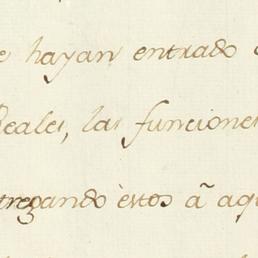 e hayan entrado
Reales, las funciones
tregando èstos ã aqu